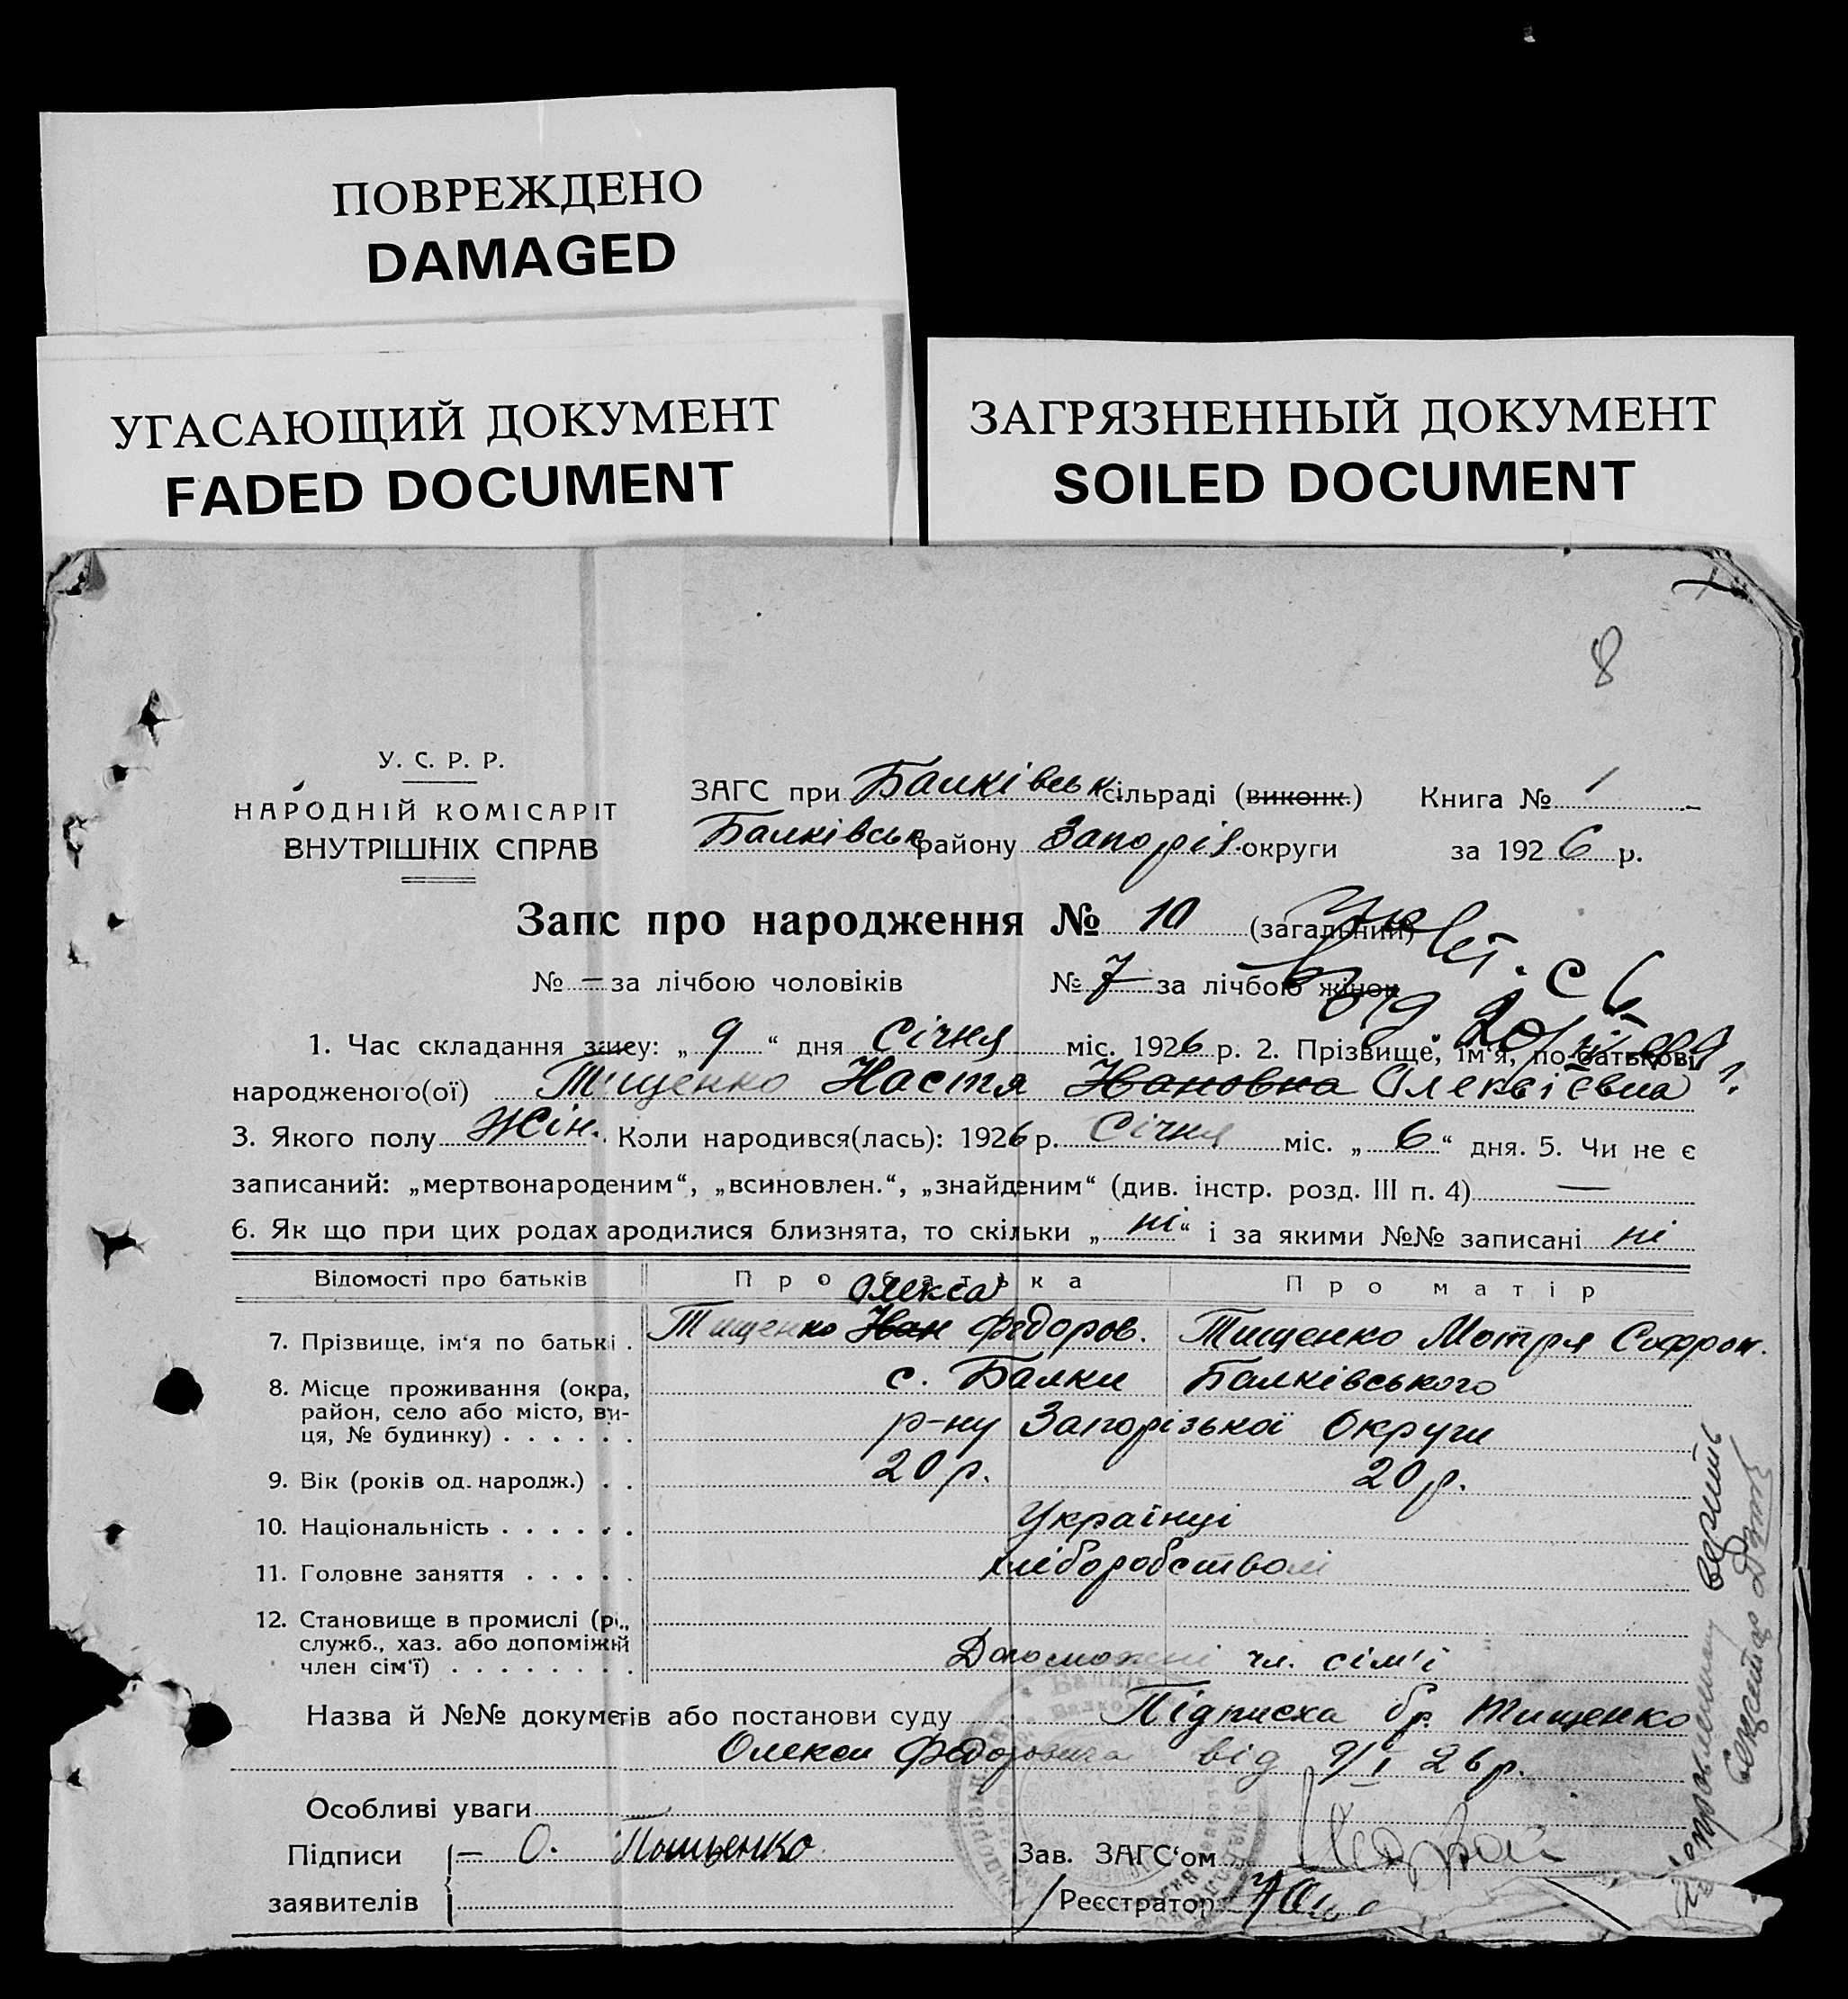 ПОВРЕЖДЕНО
DAMAGED
УГАСАЮЩИЙ ДОКУМЕНТ
FADED DOCUMENT
ЗАГРЯЗНЕННЫЙ ДОКУМЕНТ
SOILED DOCUMENT
8
У. С. Р. Р.
НАРОДНІЙ КОМІСАРІТ
ВНУТРІШНІХ СПРАВ
ЗАГС при Балківськ сільраді (виконк.) Книга № 1
Балківськ району Запоріз. округи за 1926 р.
Запс про народження № 10 (загальний)
№ — за лічбою чоловіків № 7 за лічбою жінок
1. Час складання запсу: „ 9 “ дня Січня міс. 1926 р. 2. Прізвище, ім'я, по-батькові
народженого(ої) Тищенко Настя Ивановна Олексієвна
3. Якого полу Жін. Коли народився(лась): 1926 р. Січня міс. „ 6 “ дня. 5. Чи не є
записаний: „мертвонароденим“, „всиновлен.“, „знайденим“ (див. інстр. розд. III п. 4) —
6. Як що при цих родах ародилися близнята, то скільки „ ні “ і за якими №№ записані ні
Відомості про батьків Про батька Про матір
Олекса
7. Прізвище, ім'я по батькі . Тищенко Иван Федоров. Тищенко Мотря Софрон.
8. Місце проживання (окра, с. Балки Балківського
район, село або місто, ви-
ця, № будинку) . . . . . . р-ну Запорізької Округи
9. Вік (років од. народж.) . . 20 р. 20 р.
10. Національність . . . . . . Українці
11. Головне заняття . . . . . хліборобством
12. Становище в промислі (р.,
служб., хаз. або допоміжй
член сім'ї) . . . . . . . . Допоможні чл. сім'ї
Назва й №№ докуметів або постанови суду Підписка гр. Тищенко
Олекси Федоровича від 9/I 26 р.
Особливі уваги —
Підписи — О. Тищенко Зав. ЗАГС'ом
заявителів Реєстратор